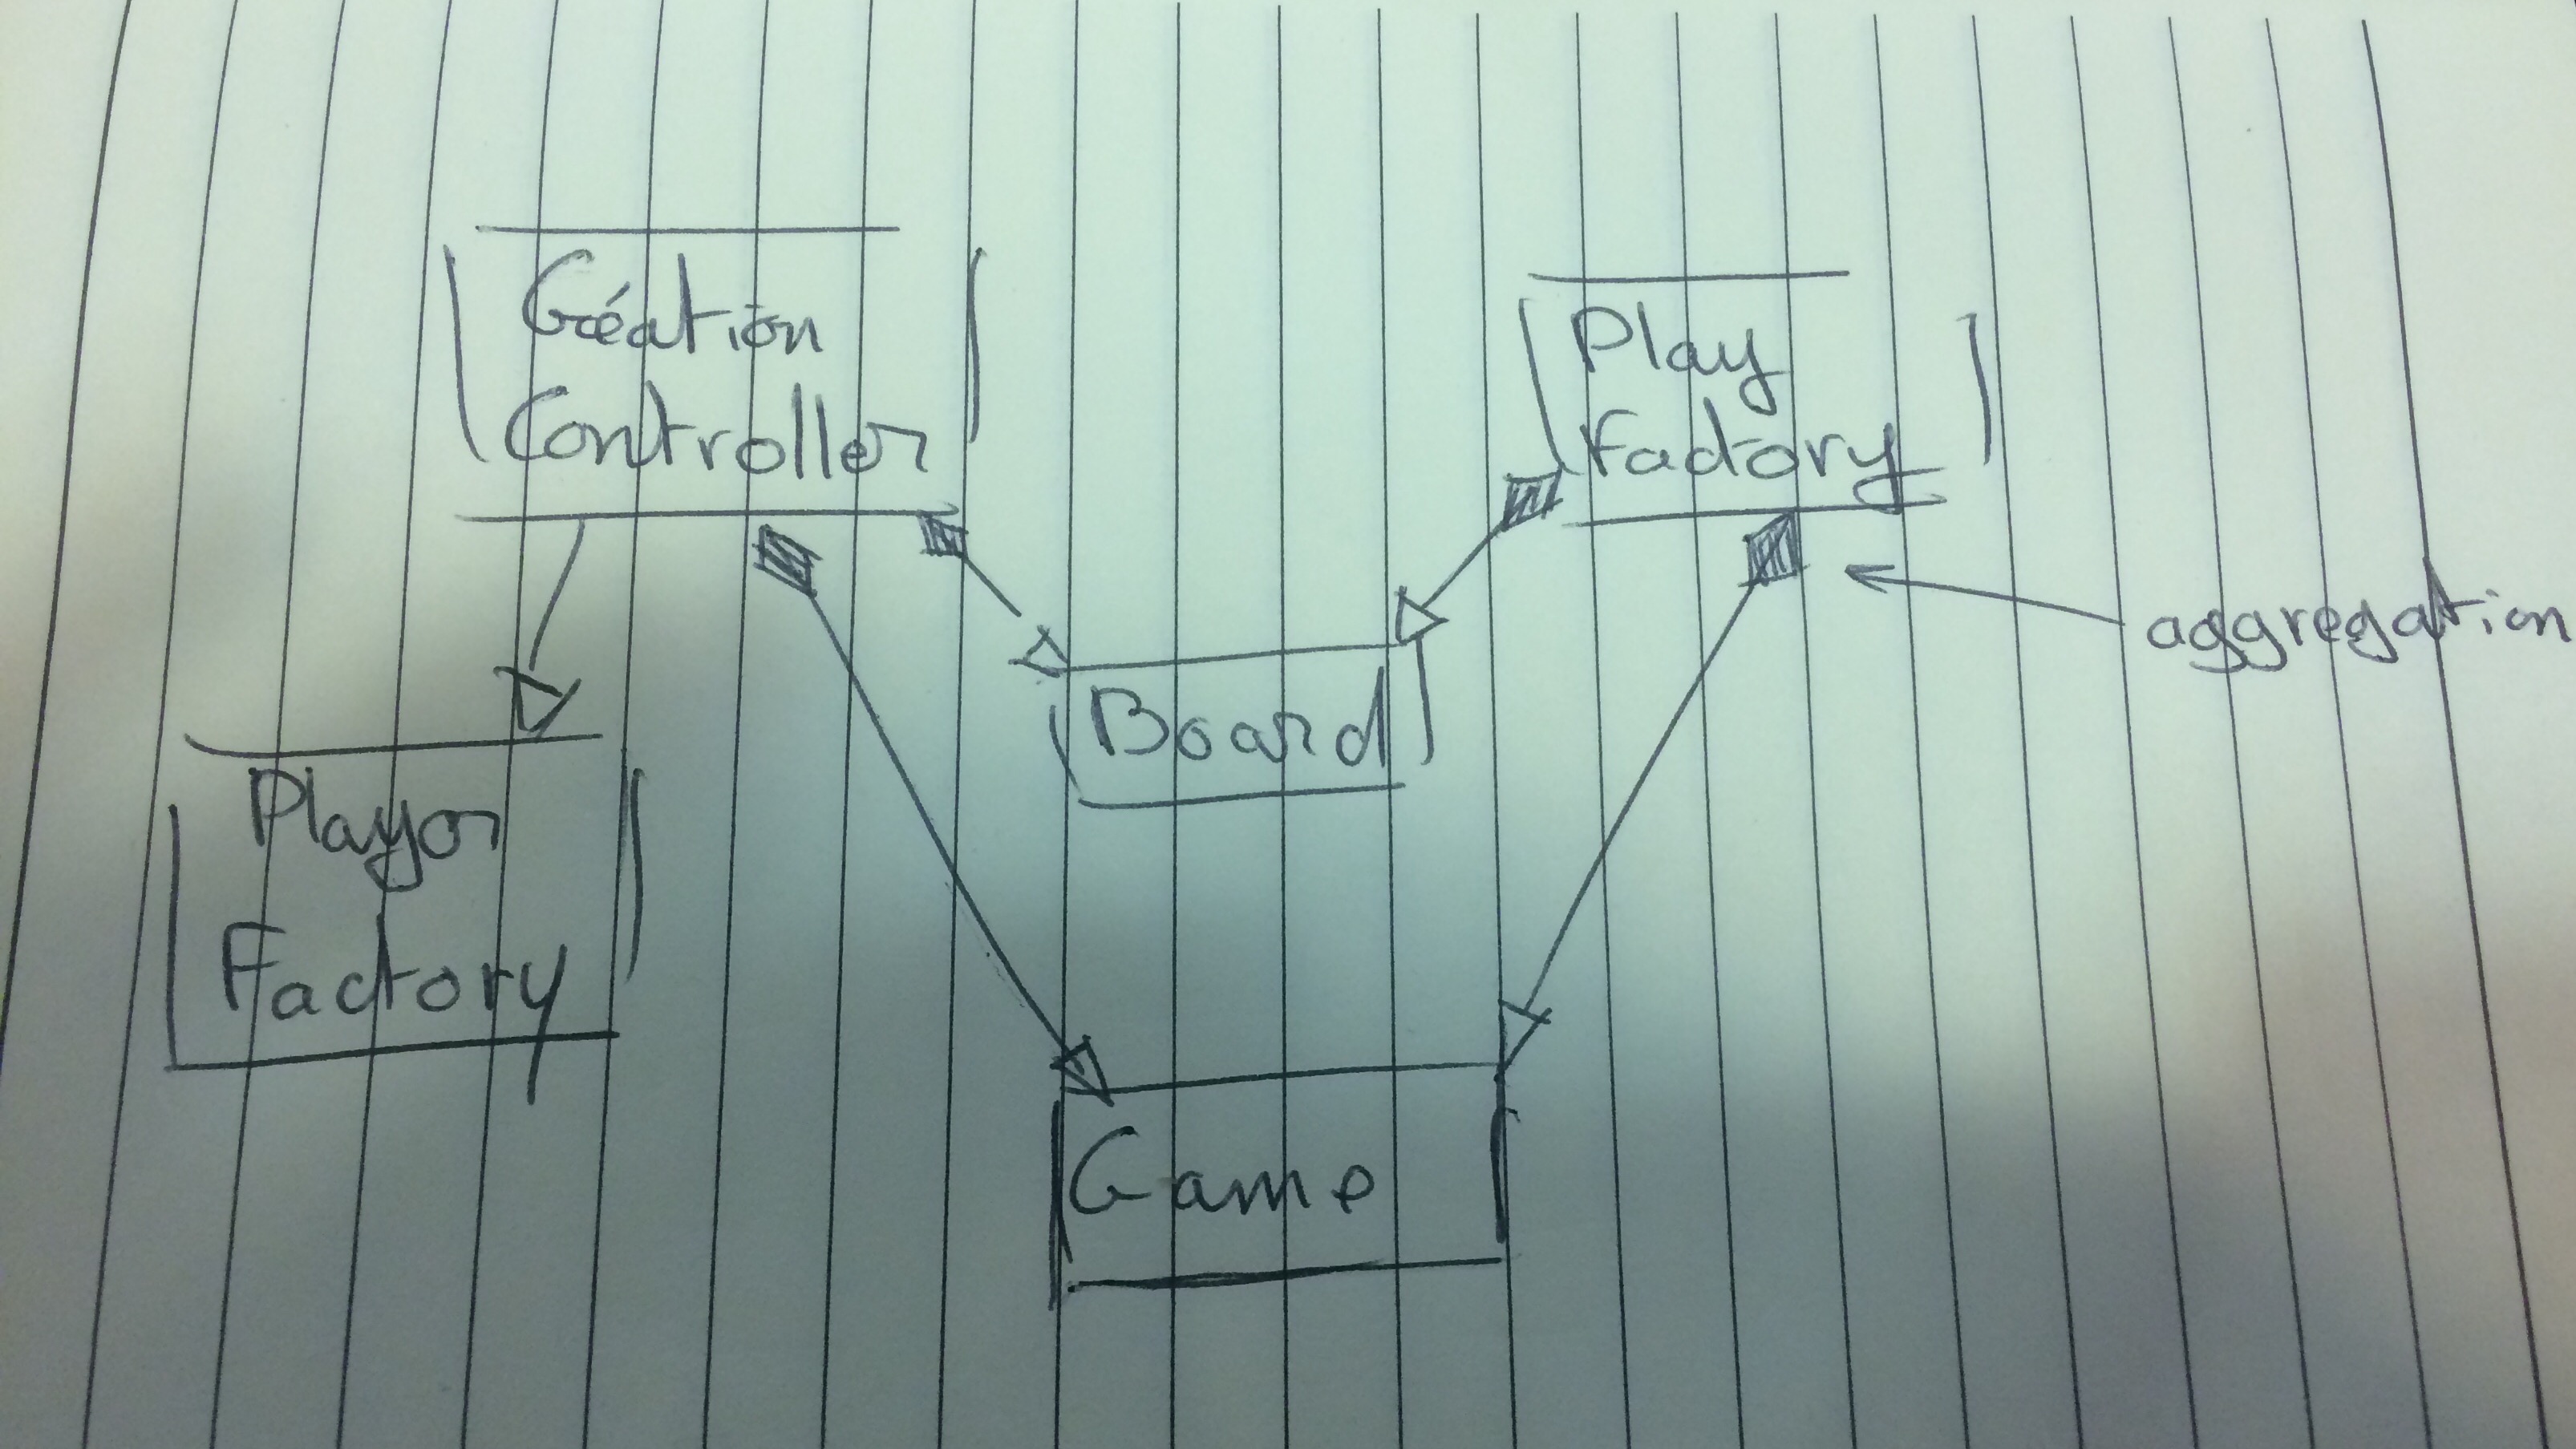 Création
Controller
Play
Factory
aggregation
Board
Player
Factory
Game